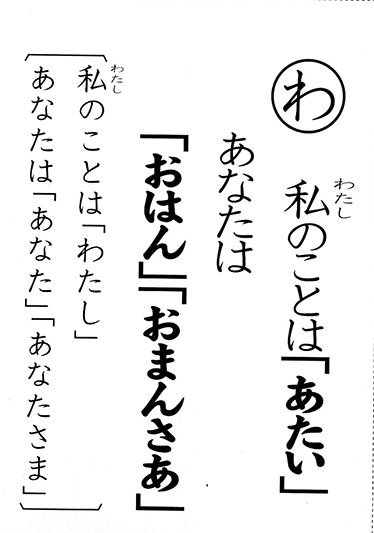 わ
私のことは「あたい」
わたし
あなたは
「おはん」「おまんさあ」
私のことは「わたし」
わたし
あなたは「あなた」「あなたさま」